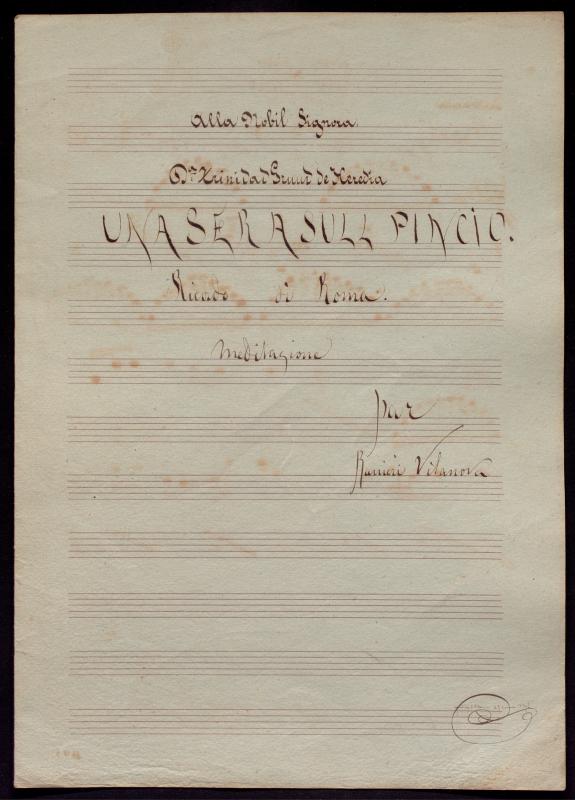 Alla Nobil Signora.
Dª Trinidad Grund de Heredia
UNA SERA SULL PINCIO.
Ricordo di Roma.
Meditazione
par
Ranieri Vilanova